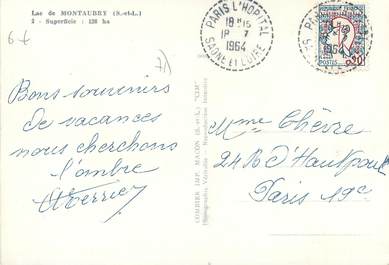 Lac de MONTAUBRY (S.-et-L.)
2 - Superficie : 128 ha
6 f
PARIS L'HOPITAL
18 H 15
18 - 7
1964
SAONE ET LOIRE
REPUBLIQUE FRANCAISE
POSTES
0,20
71
Bons souvenirs
de vacances
nous cherchons
l'ombre
COMBIER IMP. MACON (S.-et-L.) "CIM"
Photographie Véritable - Reproduction Interdite
Mme Chèvre
24 Bd d'Hautpoul
Paris 19e